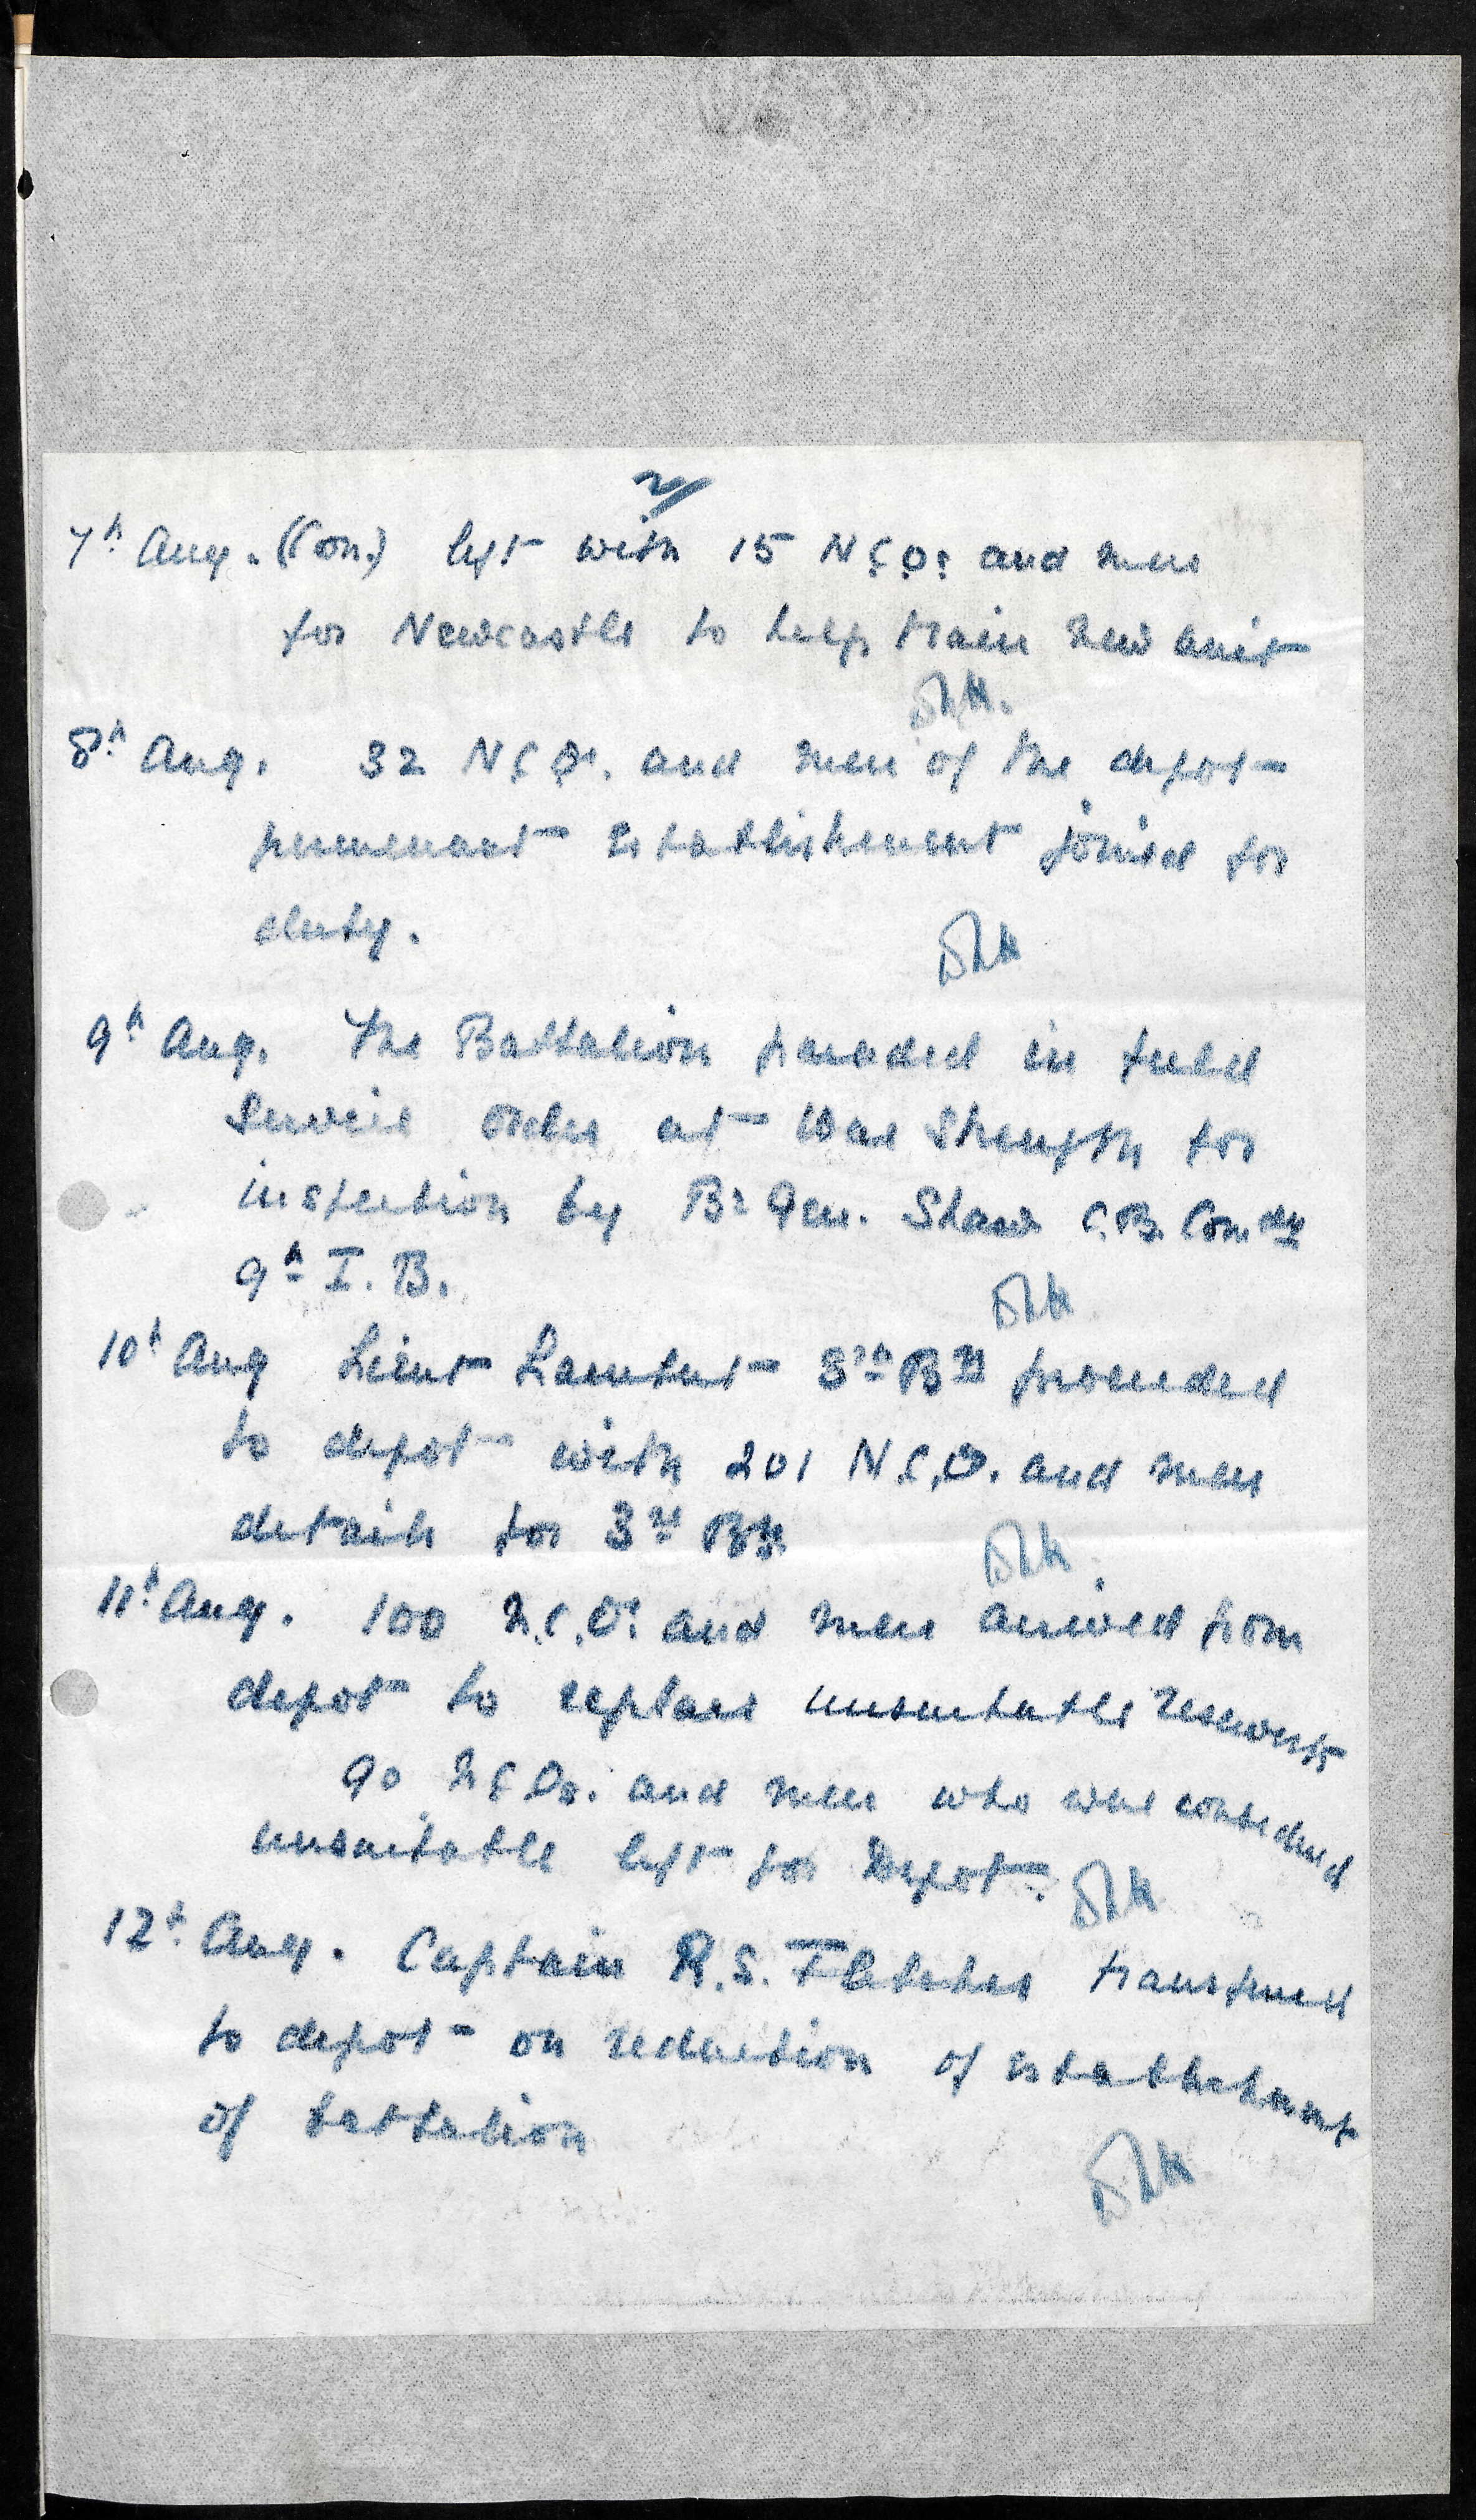 2/
7th Aug. (Con.) left with 15 N.C.Os and men
for Newcastle to help train new unit
8th Aug. 32 N.C.Os. and men of the depot
permenant establishment joined for
duty.
9th Aug. The Battalion paraded in field
Service order at War Strength for
inspection by Br Gen. Shaw C.B. Comdg
9th I.B.
10th Aug Lieut Lambert 3rd Bn proceeded
to depot with 201 N.C.O. and men
details for 3rd Bn.
11th Aug. 100 N.C.Os and men arrived from
depot to replace unsuitable reservists
90 N.C.Os. and men who were considered
unsuitable left for Depot.
12th Aug. Captain R.S. Fletcher transferred
to depot on reduction of establishment
of battalion